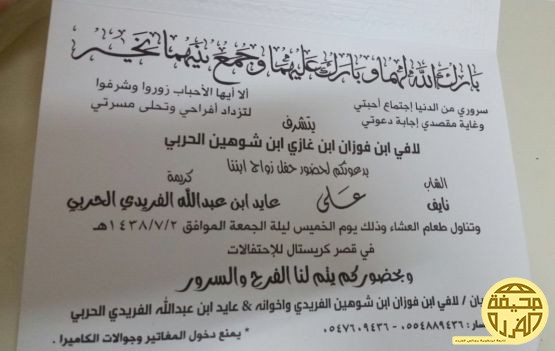 بارك الله لهما وبارك عليهما وجمع بينهما بخير
سروري من الدنيا إجتماع أحبتي ألا أيها الأحباب زوروا وشرفوا
وغاية مقصدي إجابة دعوتي لتزداد أفراحي وتحلى مسرتي
يتشرف
لافي ابن فوزان ابن غازي ابن شوهين الحربي
بدعوتكم لحضور حفل زواج ابننا
الشاب كريمة
نايف على عايد ابن عبدالله الفريدي الحربي
وتناول طعام العشاء وذلك يوم الخميس ليلة الجمعة الموافق ١٤٣٨/٧/٢هـ
في قصر كريستال للإحتفالات
وبحضوركم يتم لنا الفرح والسرور
لافي ابن فوزان ابن شوهين الفريدي واخوانه & عايد ابن عبدالله الفريدي الحربي
٠٥٥٤٨٨٩٤٣٦ - ٠٥٤٧٦٠٩٤٣٦ * يمنع دخول المفاتير وجوالات الكاميرا .
صحيفة